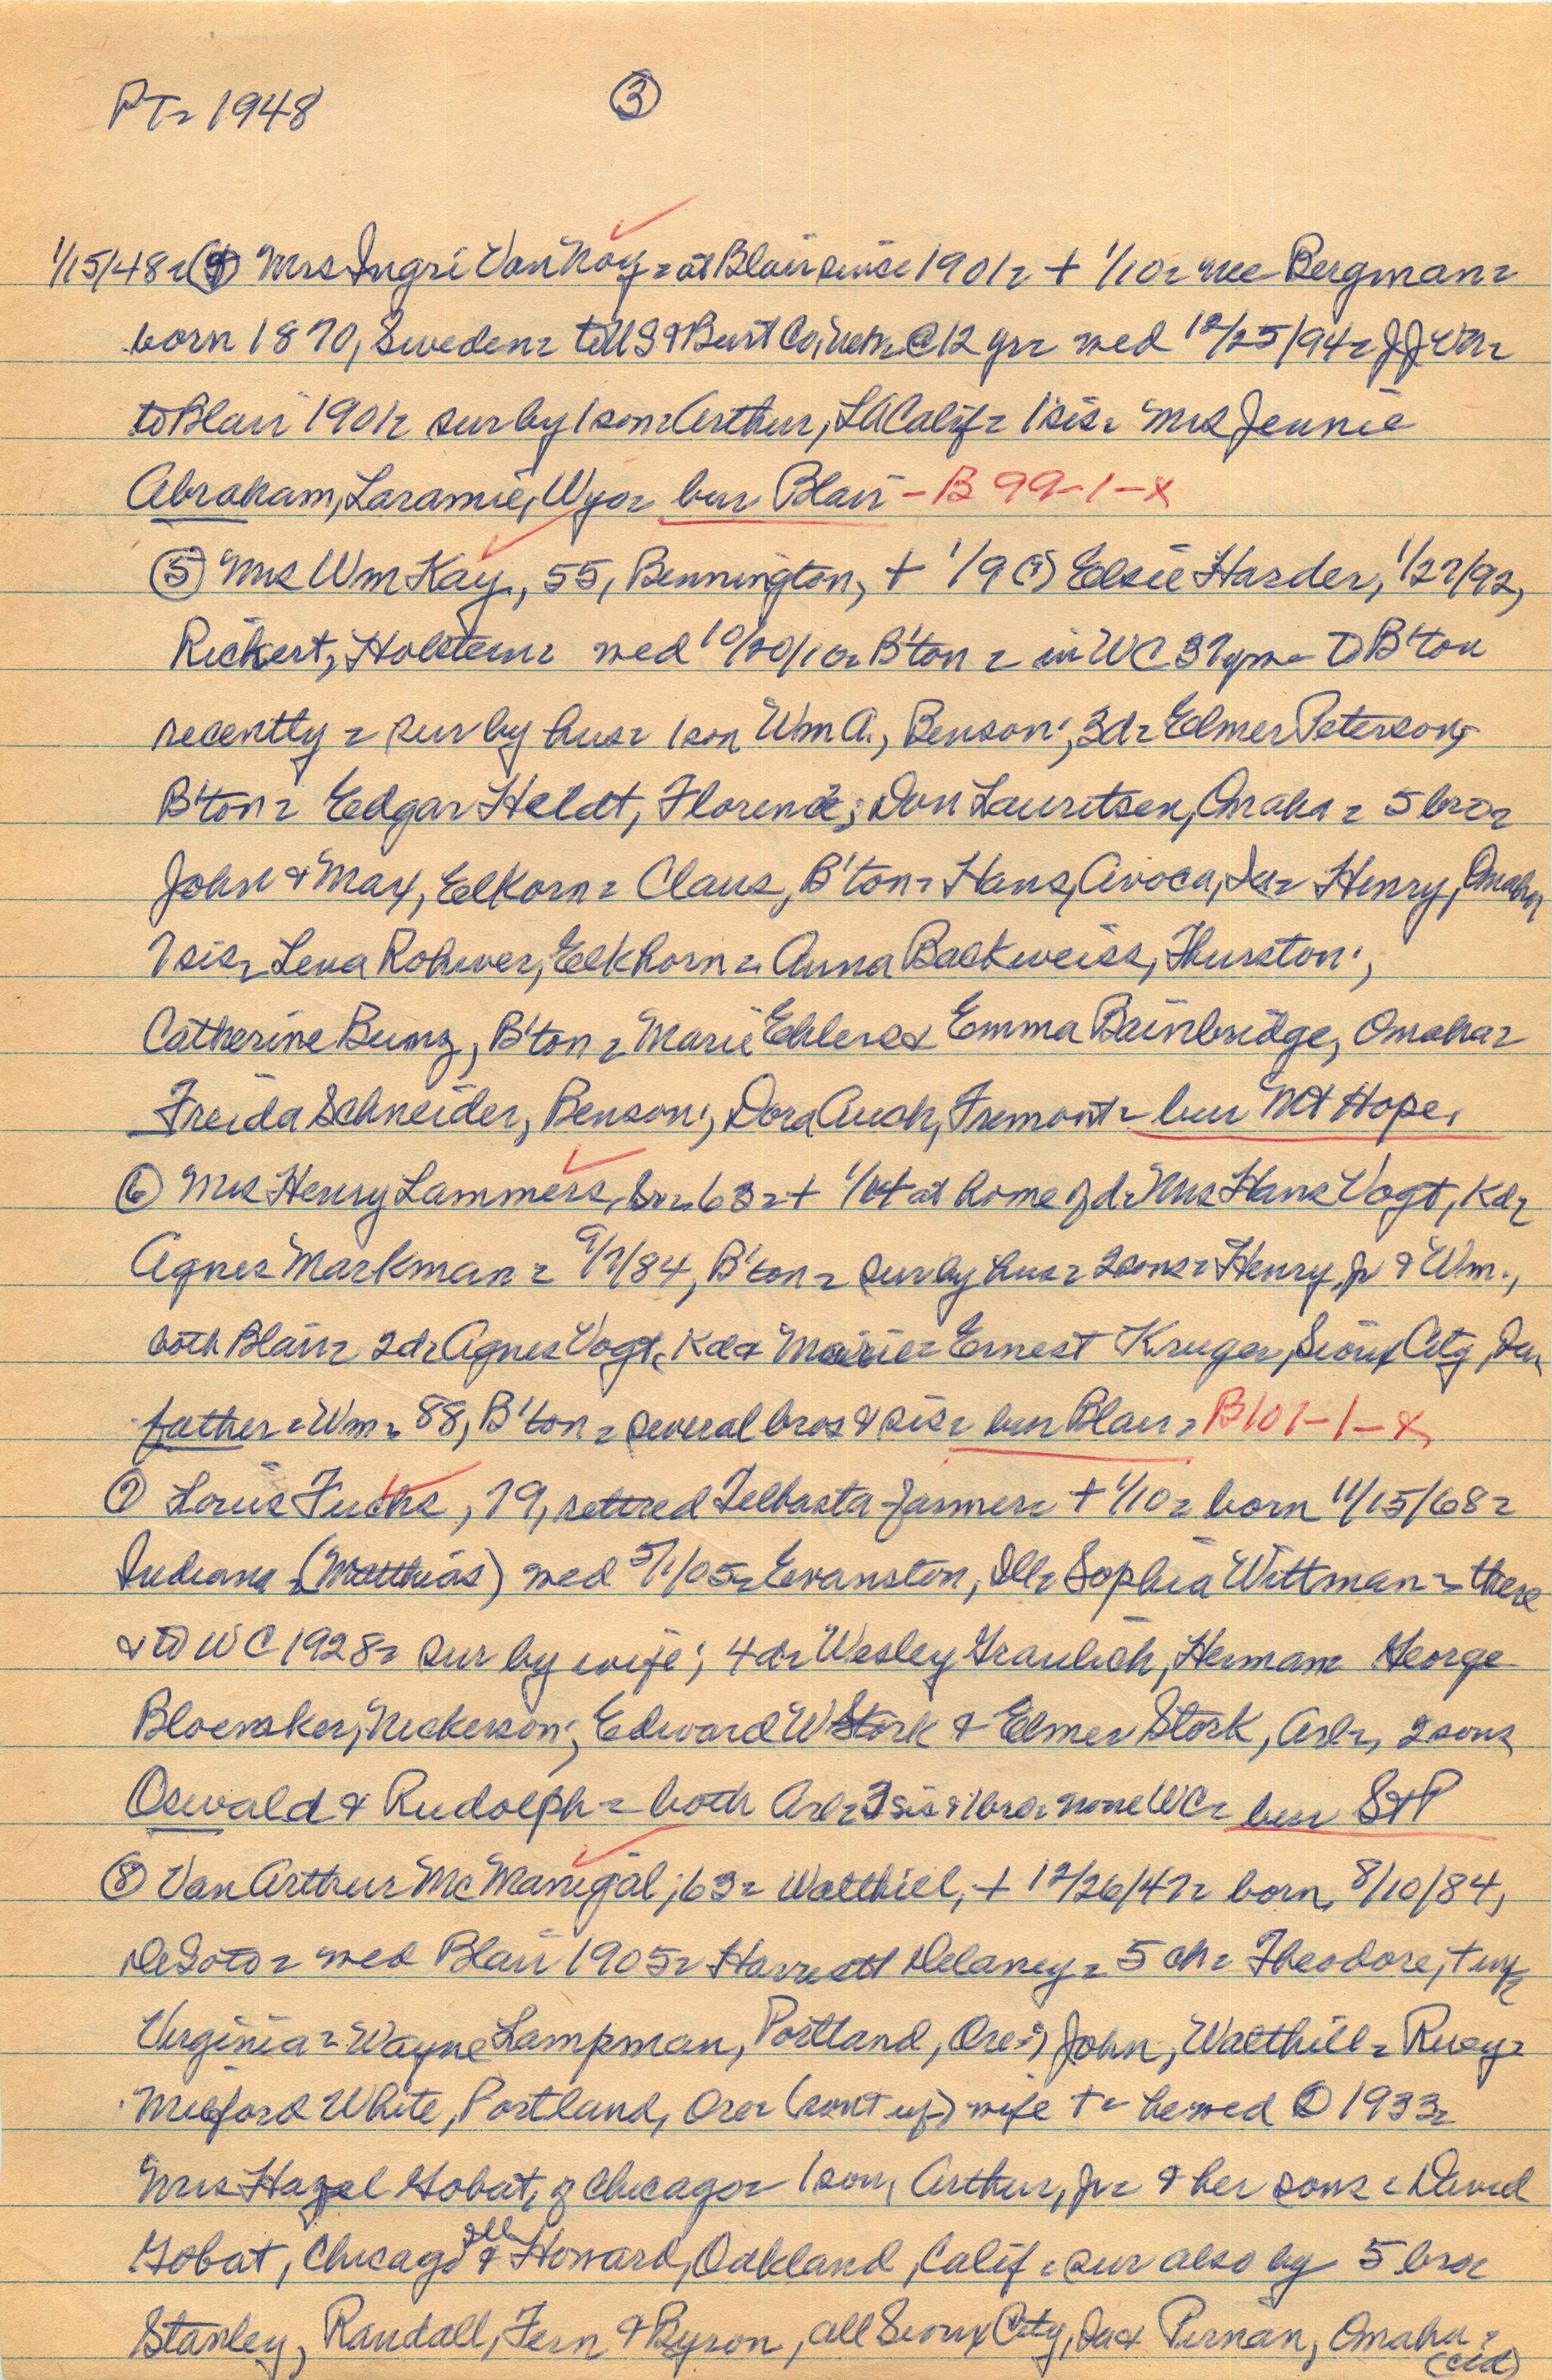 PT- 1948 3
1/15/48- (4) Mrs Ingri Van Noy- at Blair since 1901- + 1/10- nee Bergman-
born 1870, Sweden- to US & Burt Co, Neb- @ 12 yr- med 12/25/94- JJVN-
to Blair 1901- sur by 1 son- Arthur, LA Calif- 1 sis- Mrs Jennie
Abraham, Laramie, Wyo- bur Blair - B 99-1-x
(5) Mrs Wm Kay, 55, Bennington, + 1/9 Elsie Harder, 1/27/92,
Rickert, Holstein- med 10/20/10- B'ton - in WC 37 yrs - to B'ton
recently - sur by hus- 1 son Wm A., Benson; 3d- Elmer Peterson,
B'ton- Edgar Heldt, Florence; Don Lauritsen, Omaha - 5 bro-
John & Max, Elkorn- Claus, B'ton- Hans, Avoca, Ia- Henry, Omaha,
7 sis- Lena Rohwer, Elkhorn- Anna Backweiss, Thurston;
Catherine Bunz, B'ton- Marie Ehlers & Emma Bainbridge, Omaha-
Freida Schneider, Benson; Dora Auch, Fremont- bur Mt Hope.
(6) Mrs Henry Lammers, Sr- 63- + at home of d- Mrs Hans Vogt, Kd-
Agnes Markman - 9/7/84, B'ton- sur by hus- 2 sons- Henry, Jr & Wm.,
both Blair- 2d- Agnes Vogt, Kd & Marie- Ernest Kruger, Sioux City, Ia-
father- Wm- 88, B'ton- several bros & sis- bur Blair- B101-1-x
(7) Louis Fuchs, 79, retired Telbasta farmer- + 1/10- born 11/15/68-
Indiana (Matthias) med 5/1/05- Evanston, Ill- Sophia Wittman- there
& to WC 1928- sur by wife; 4d- Wesley Graulich, Herman- George
Bloemker, Nickerson; Edward W Stork & Elmer Stork, Arl-, 2 sons
Oswald & Rudolph - both Arl- 3 sis & 1 bro- none WC- bur St P
(8) Van Arthur McManigal, 63- Walthill, + 12/26/47- born, 8/10/84,
DeSoto- med Blair 1905- Harriett Delaney- 5 ch- Theodore, + inf-
Virginia- Wayne Lampman, Portland, Ore; John, Walthill-
Milford White, Portland, Ore- wife +- he med (2) 1933-
Mrs Hazel Gobat, of Chicago- 1 son, Arthur, Jr- & her sons- David
Gobat, Chicago Ill & Howard, Oakland, Calif- sur also by 5 bro-
Stanley, Randall, Fern & Byron, all Sioux City, Ia & Pirnan, Omaha-
(ctd)